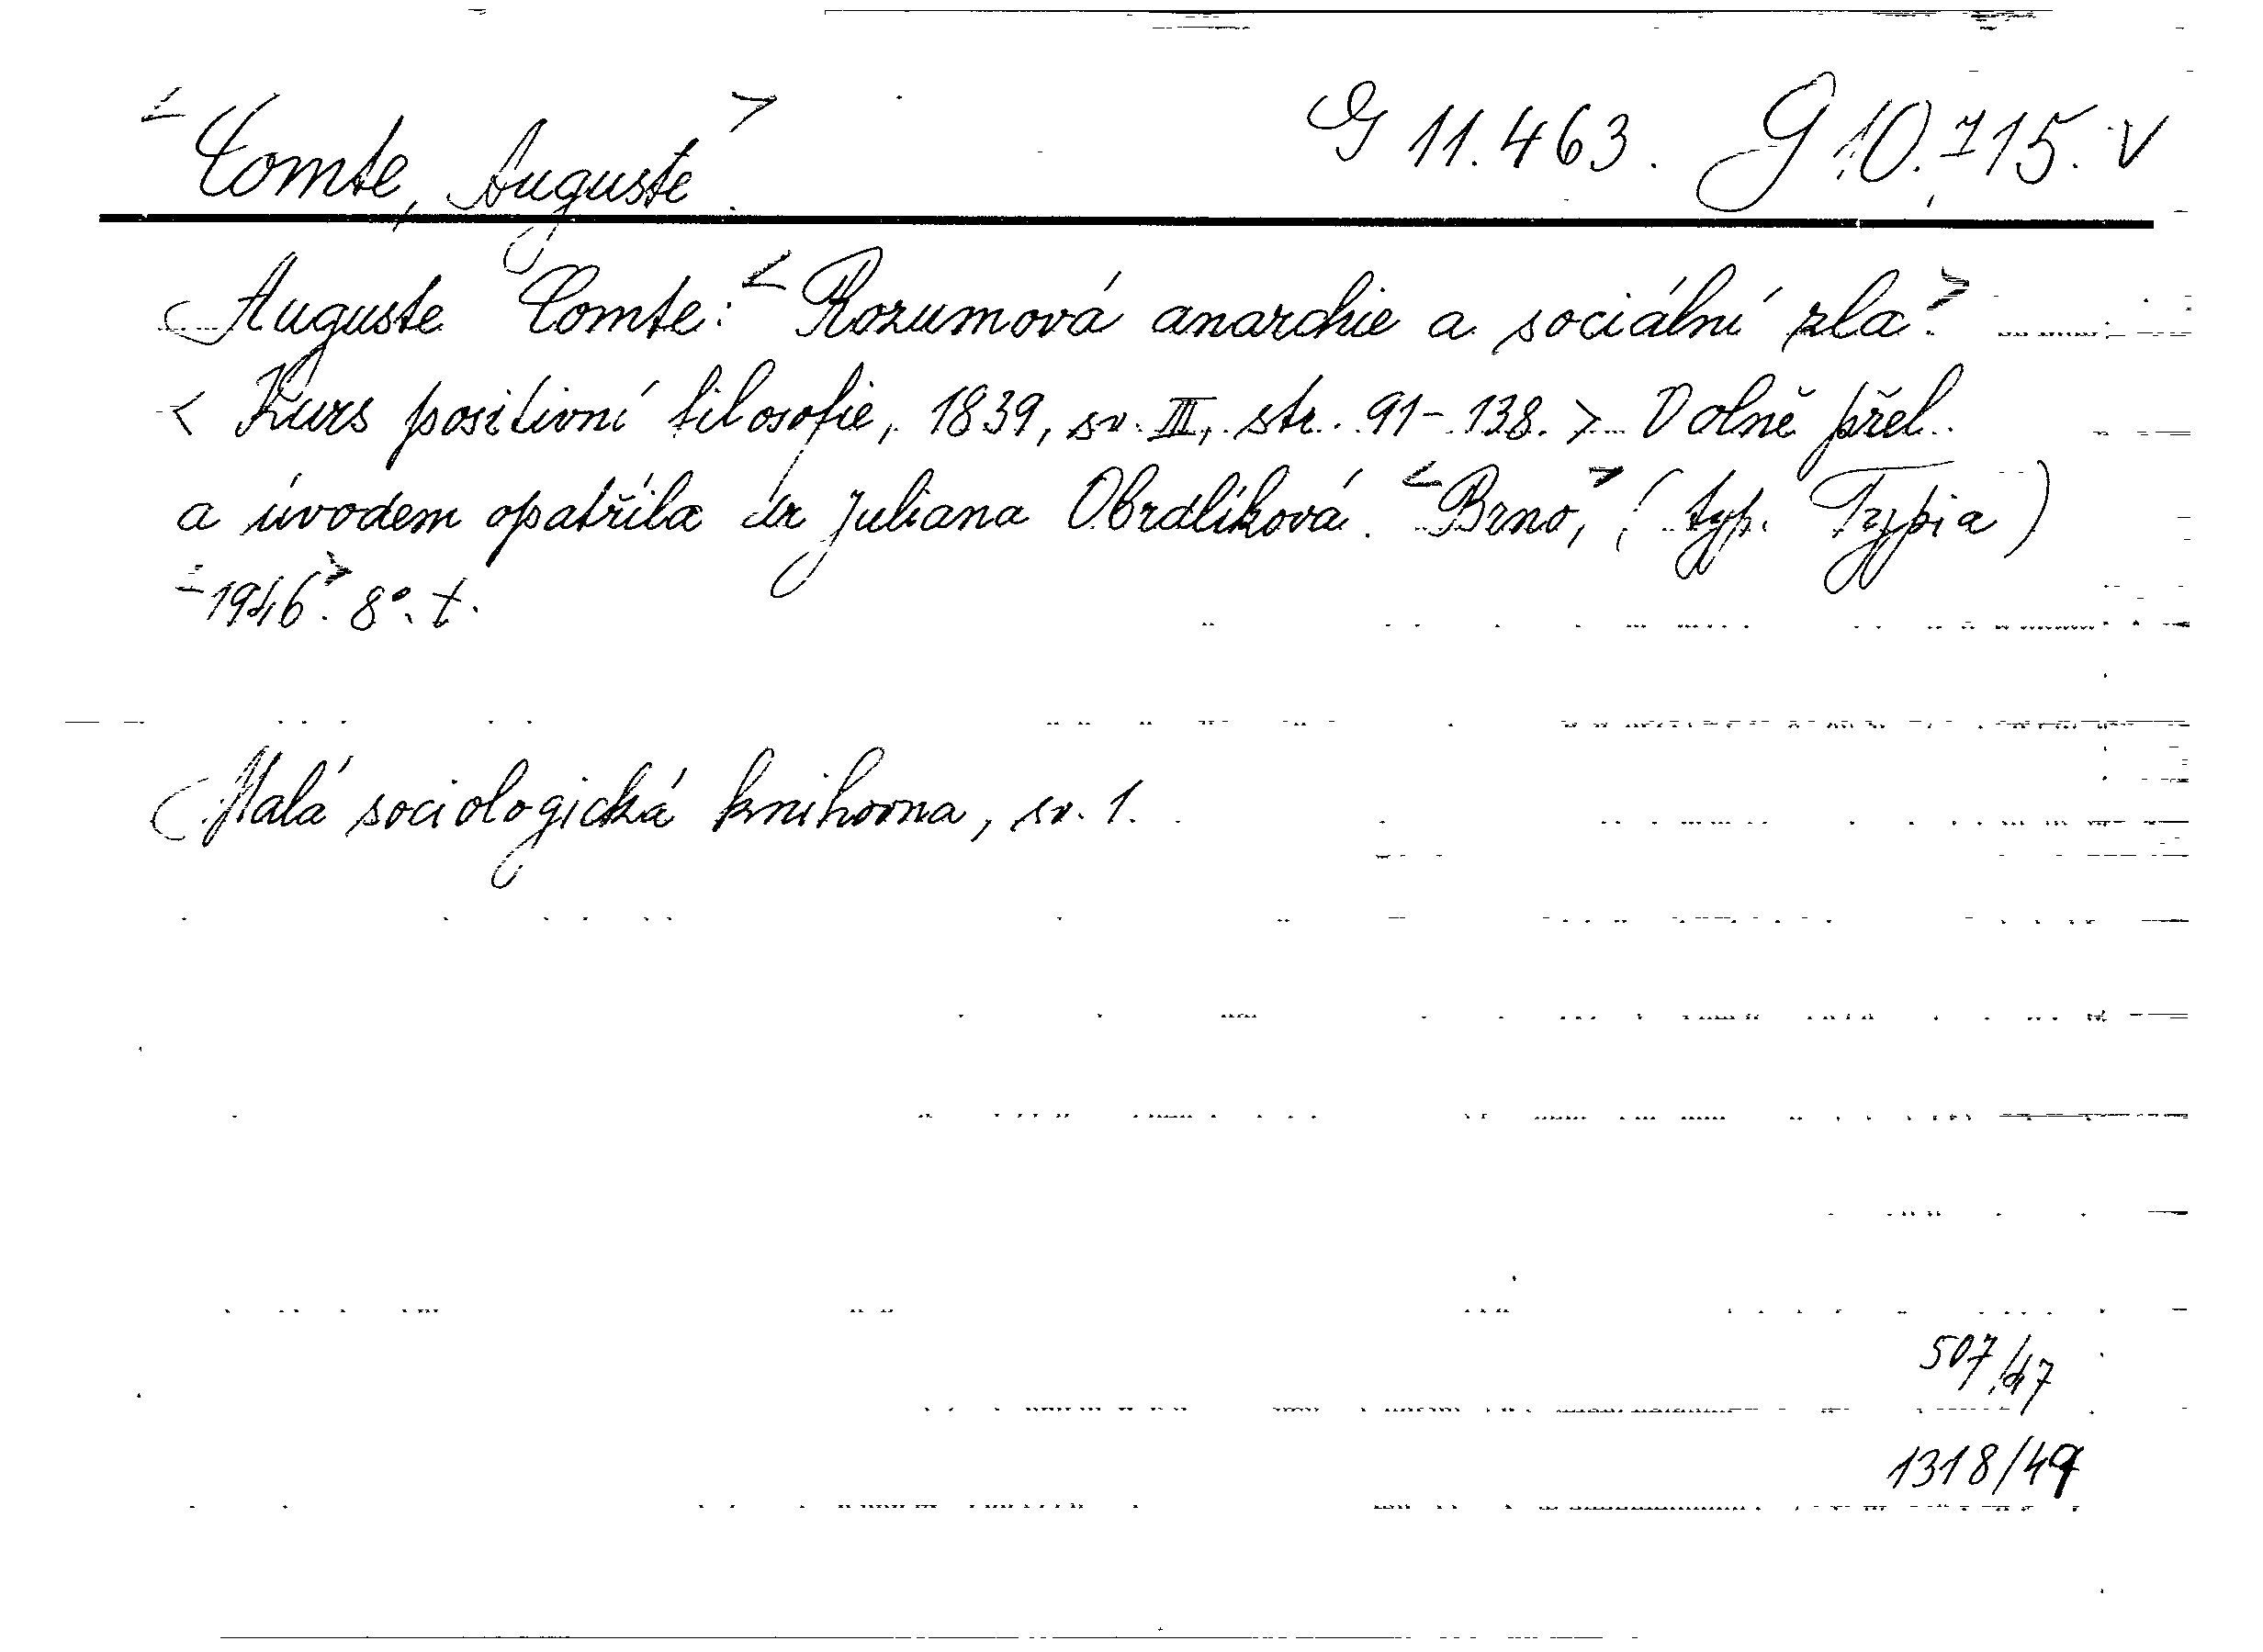 <Comte, Auguste> G 11.463. G 10.715. V
Auguste Comte: <Rozumová anarchie a sociální zla.>
<Kurs positivní filosofie, 1839, sv. III, str. 91-138.> Volně přel.
a úvodem opatřila dr Juliana Obrdlíková. <Brno,> (typ. Typia)
<1946>. 8°. t.
Malá sociologická knihovna, sv. 1.
507/47
1318/49